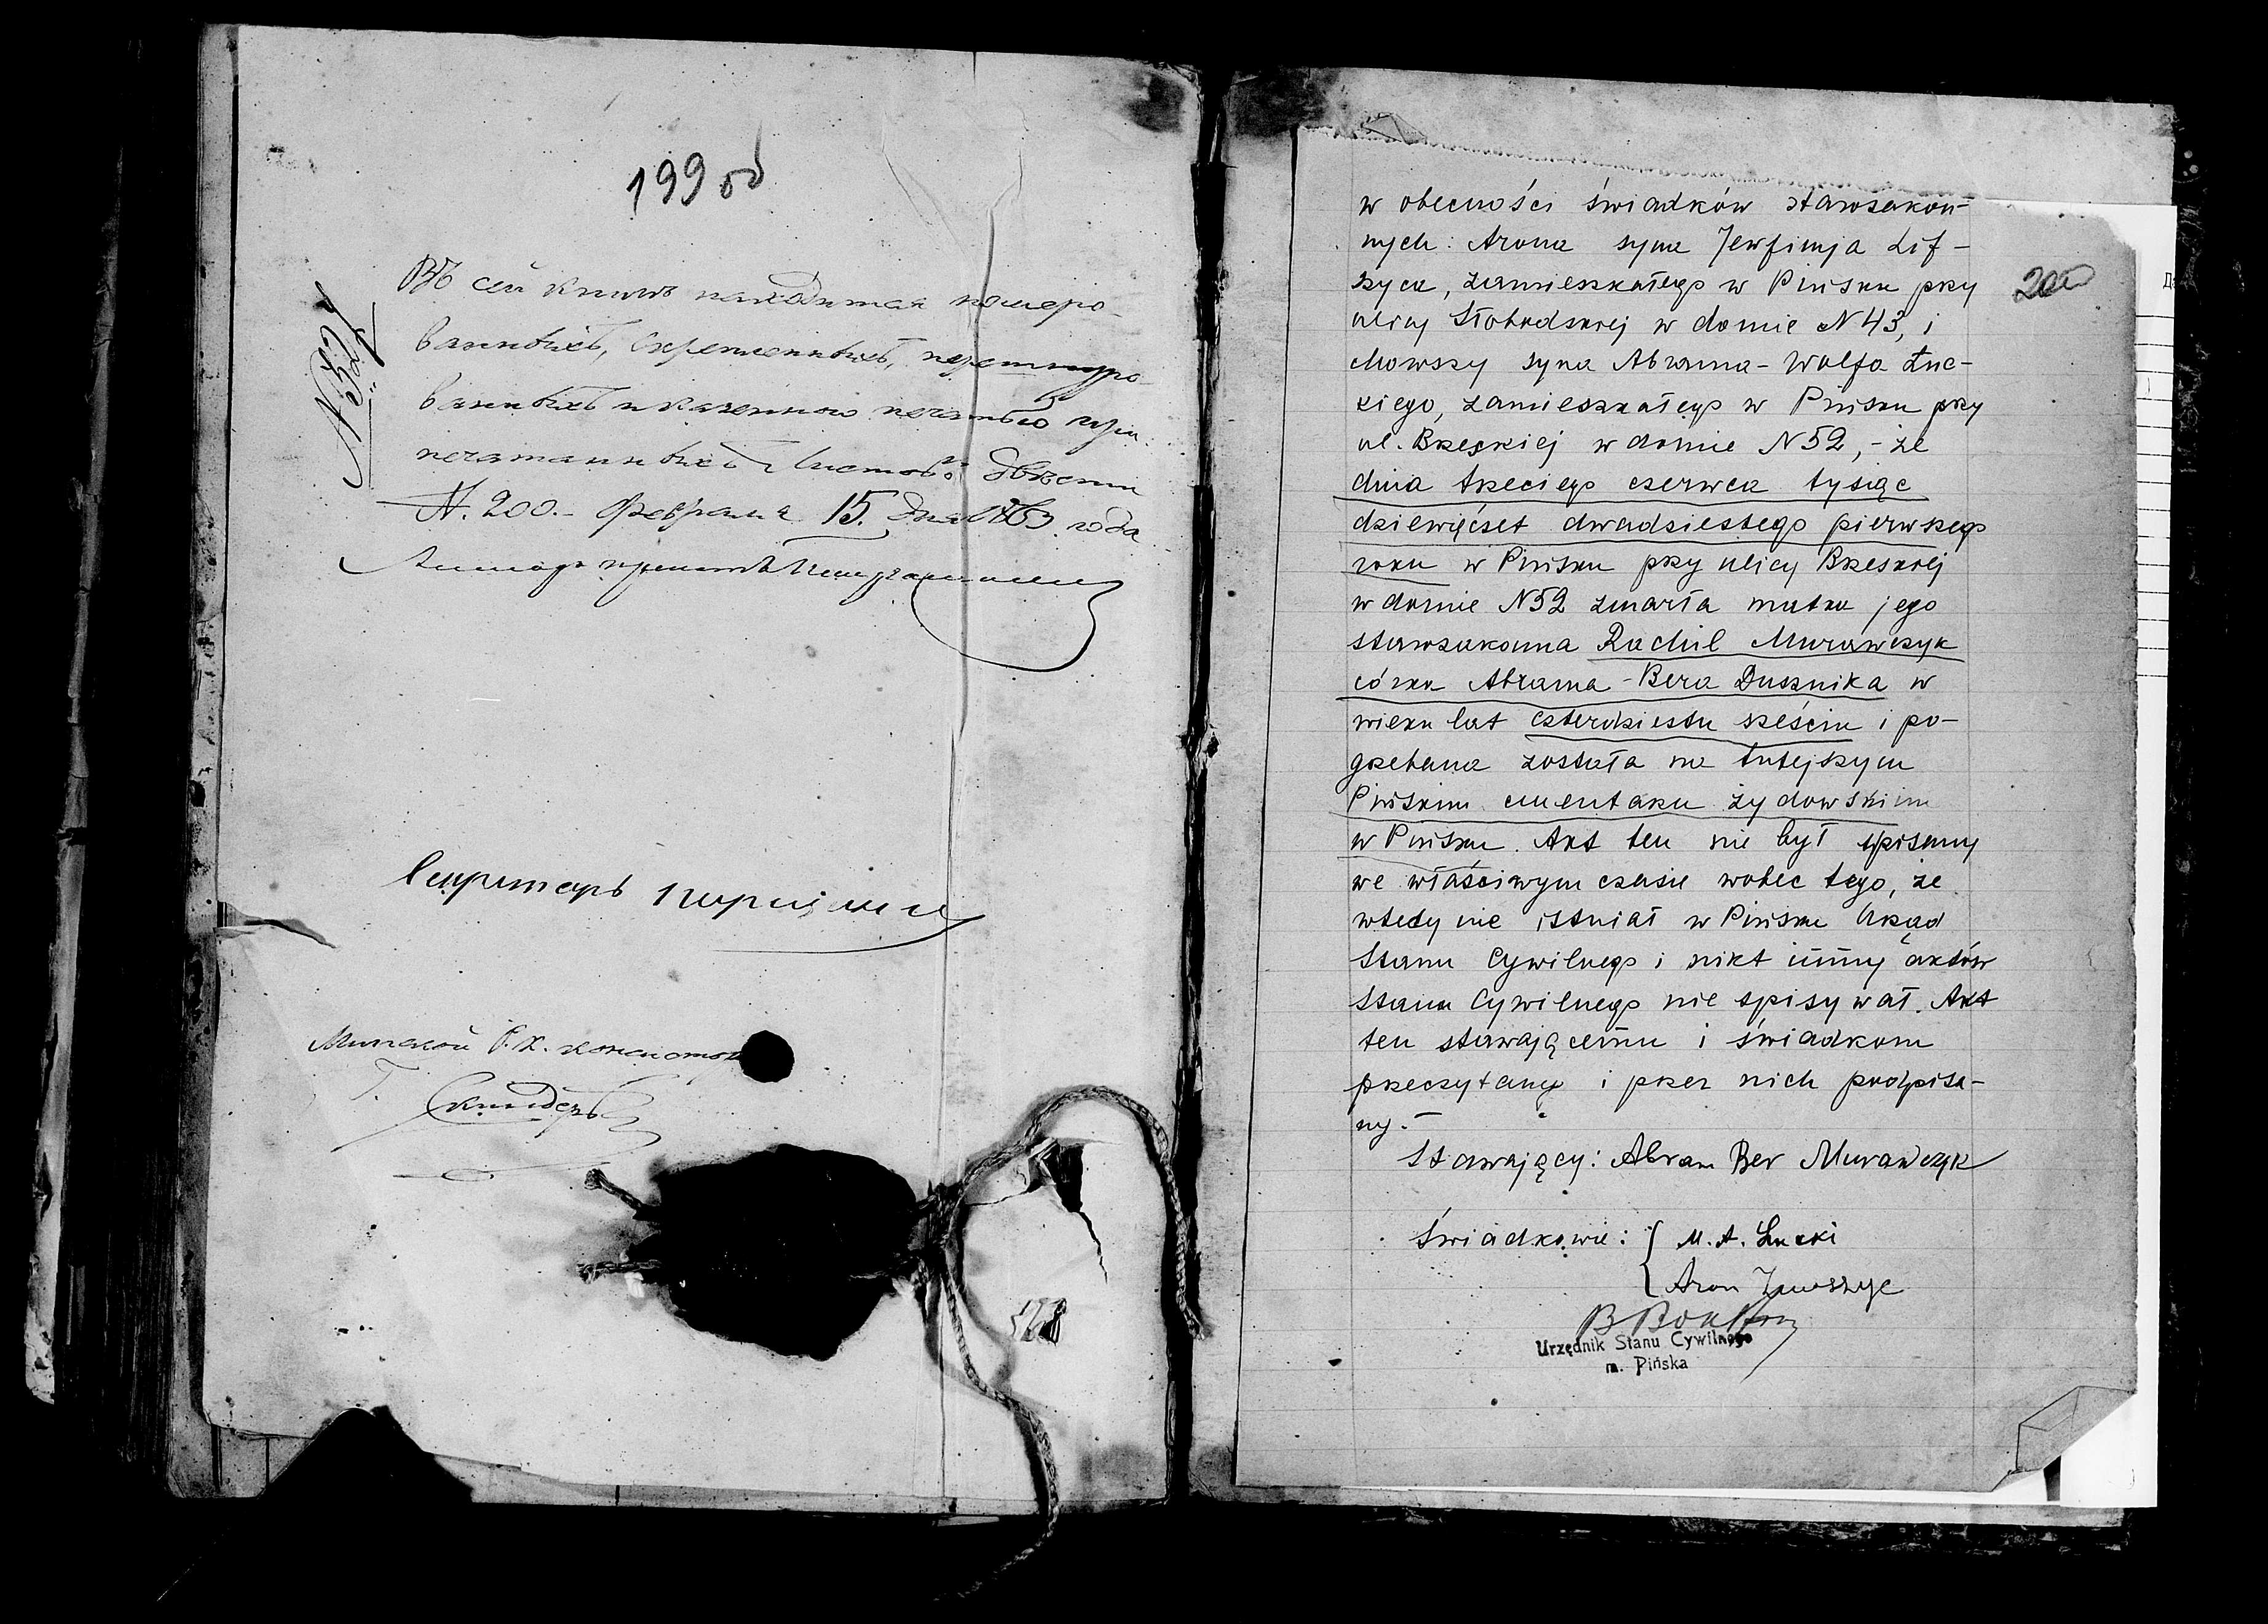 199 об
№ 527
Въ сей книгѣ находится номеро-
ванныхъ, скрепленныхъ, перешнуро-
ванныхъ и казенною печатью при-
печатанныхъ листовъ двѣсти
№. 200.- Февраля 15. дня 1863 года
Секретарь
Минской
168
200
w obecności świadków starozakon-
nych: Arona syna Jewfimja Lif-
szyca, zamieszkałego w Pińsku przy
ulicy Słobodskiej w domie N 43, i
Mowszy syna Abrama-Wolfa Łuc-
kiego, zamieszkałego w Pińsku przy
ul. Brzeskiej w domie N 52, - że
dnia trzeciego czerwca tysiąc
dziewięćset dwadziestego pierwszego
roku w Pińsku przy ulicy Brzeskiej
w domie N 52 zmarła matka jego
starozakonna Rachil Murawczyk
córka Abrama-Bera Dusznika w
wieku lat czterdziestu sześciu i po-
grzebana została na tutejszym
Pińskim cmentarzu żydowskim
w Pińsku. Akt ten nie był spisany
we właściwym czasie wobec tego, że
wtedy nie istniał w Pińsku Urząd
Stanu Cywilnego i nikt inny aktów
Stanu Cywilnego nie spisywał. Akt
ten stawającemu i świadkom
przeczytany i przez nich podpisa-
ny.-
Stawający: Abram Ber Murawczyk
Świadkowie: { M. A. Łucki
Aron
Urzędnik Stanu Cywilnego
m. Pińska